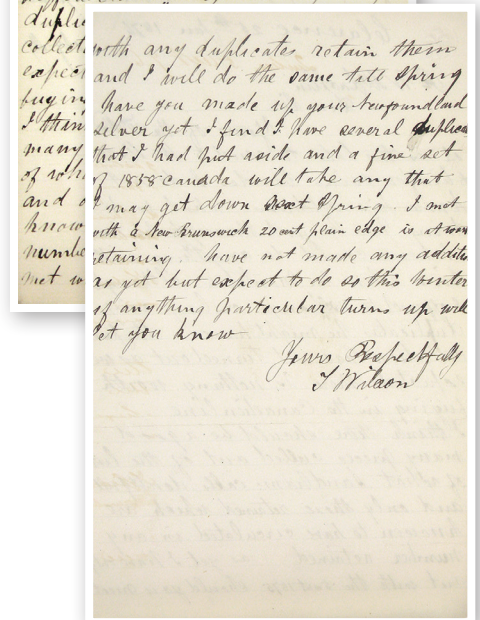 duplic
collect
expect
buying
I thin
many
of wh
and o
know
numbe
met w
with any duplicates retain them
and I will do the same till Spring
have you made up your Newfoundland
Silver yet I find I have several duplica
that I had put aside and a fine set
of 1858 Canada will take any that
I may get down next Spring. I met
with a New Brunswick 20 cent plain edge is it worth
retaining. have not made any additio
as yet but expect to do so this Winter
if anything particular turns up will
let you know
Yours Respectfully
T Wilson